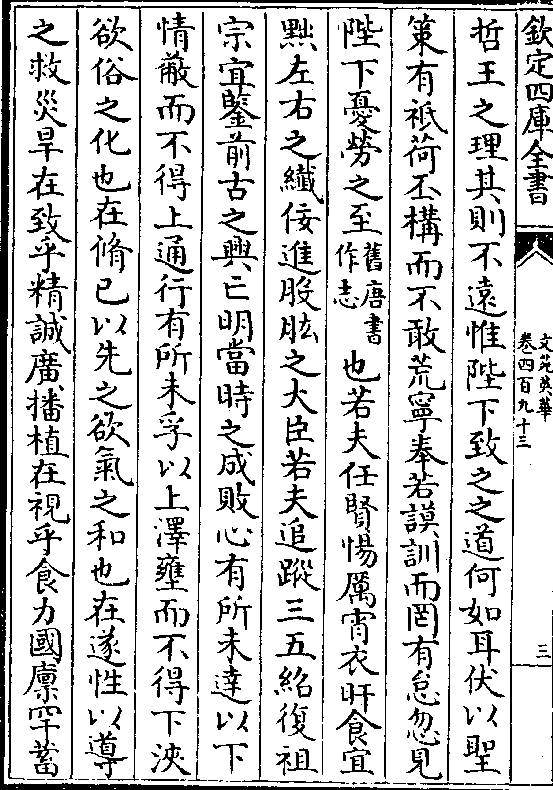 欽定四庫全書
文苑英華
卷四百九十三
三
哲王之理其則不遠惟陛下致之之道何如耳伏以聖
策有祗荷丕構而不敢荒寧奉若謨訓而罔有怠忽見
陛下憂勞之至舊唐書作志也若夫任賢惕厲宵衣旰食宜
黜左右之纖佞進股肱之大臣若夫追蹤三五紹復祖
宗宜鑒前古之興亡明當時之成敗心有所未達以下
情蔽而不得上通行有所未孚以上澤壅而不得下浹
欲俗之化也在脩己以先之欲氣之和也在遂性以導
之救災旱在致乎精誠廣播植在視乎食力國廪罕蓄